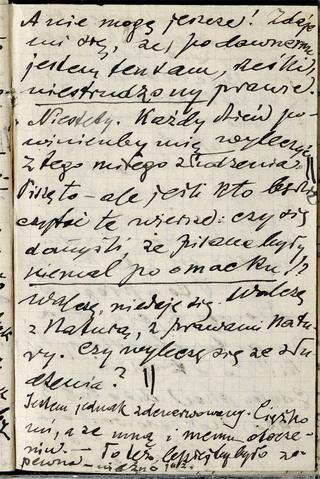 A nie mogę jeszcze! Zdaje
mi się, że, po dawnemu
jestem ten sam, rześki,
niestrudzony prawie.
Niestety. Każdy dzień po-
winienby mię wyleczyć
z tego miłego złudzenia.
Piszę to – ale jeśli kto będzie
czytać te wiersze: czy się
domyśli, że pisane były
niemal po omacku!?
Walczę, nie daję się. Walczę
z Naturą, z prawami Natu-
ry. Czy wyleczę się ze złu-
dzenia?
Jestem jednak zdenerwowany. Ciężko
mi, ze mną i memu otocze-
niu. – To też lepiej byłoby za-
pewne – niedługo już.